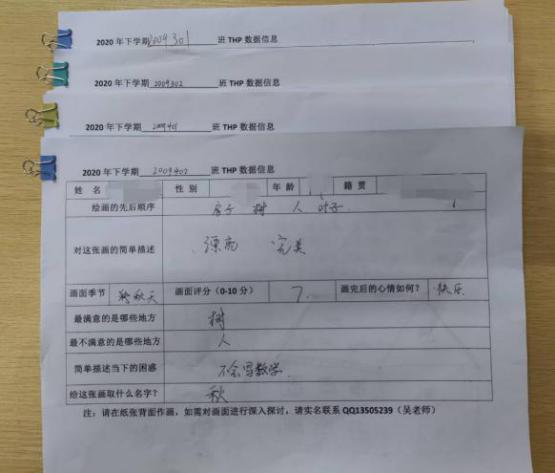 2020年下学期2009301班 THP 数据信息
2020年下学期2009302班 THP 数据信息
2020年下学期2009401班 THP 数据信息
2020年下学期2009402班 THP 数据信息
姓名 性别 年龄 籍贯
绘画的先后顺序 房子 树 人 叶子
对这张画的简单描述 漂亮 完美
画面季节 秋天 画面评分（0-10分） 7. 画完后的心情如何？ 快乐
最满意的是哪些地方 树
最不满意的是哪些地方 人
简单描述当下的困惑 不会写数学.
给这张画取什么名字？ 秋
注：请在纸张背面作画，如需对画面进行深入探讨，请实名联系 QQ13505239（吴老师）